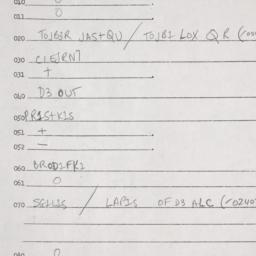 010
0
011
0
020 TOJB1R JAST QU / TOJB1 LOX Q R (
030 CIEJRNT
031 +
040 D3 OUT
050 PR1S+K1S
051 +
052 -
060 BROD1FK1
061 0
070 SG1L1S / LAP1S OF D3 ALC (
080 0